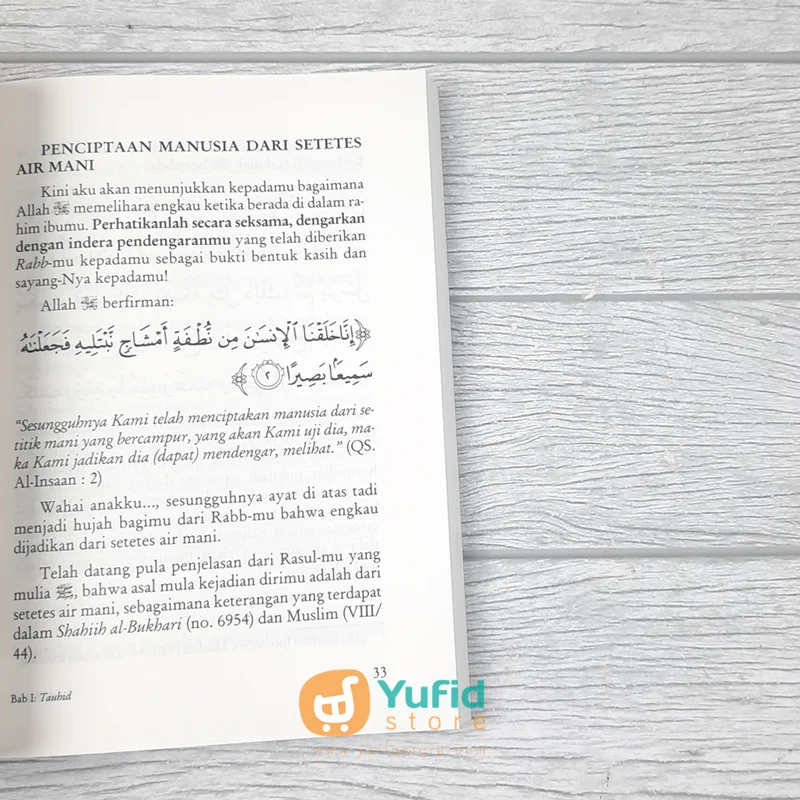 PENCIPTAAN MANUSIA DARI SETETES
AIR MANI
Kini aku akan menunjukkan kepadamu bagaimana
Allah ﷻ memelihara engkau ketika berada di dalam ra-
him ibumu. Perhatikanlah secara seksama, dengarkan
dengan indera pendengaranmu yang telah diberikan
Rabb-mu kepadamu sebagai bukti bentuk kasih dan
sayang-Nya kepadamu!
Allah ﷻ berfirman:
﴿إِنَّا خَلَقْنَا ٱلْإِنسَٰنَ مِن نُّطْفَةٍ أَمْشَاجٍ نَّبْتَلِيهِ فَجَعَلْنَٰهُ
سَمِيعًۢا بَصِيرًا ٢﴾
“Sesungguhnya Kami telah menciptakan manusia dari se-
titik mani yang bercampur, yang akan Kami uji dia, ma-
ka Kami jadikan dia (dapat) mendengar, melihat.” (QS.
Al-Insaan : 2)
Wahai anakku..., sesungguhnya ayat di atas tadi
menjadi hujah bagimu dari Rabb-mu bahwa engkau
dijadikan dari setetes air mani.
Telah datang pula penjelasan dari Rasul-mu yang
mulia ﷺ, bahwa asal mula kejadian dirimu adalah dari
setetes air mani, sebagaimana keterangan yang terdapat
dalam Shahiih al-Bukhari (no. 6954) dan Muslim (VIII/
44).
33
Bab I: Tauhid
Yufid
store